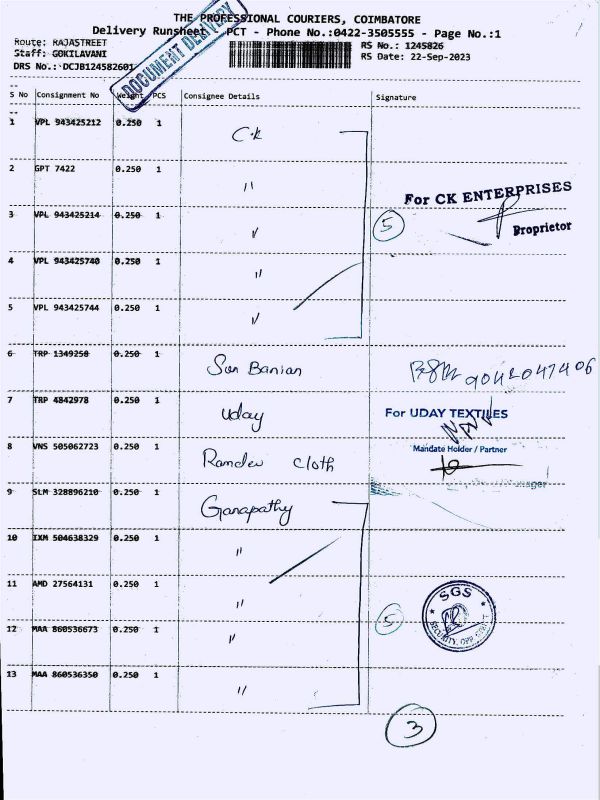 THE PROFESSIONAL COURIERS, COIMBATORE
Delivery Runsheet PCT - Phone No.:0422-3505555 - Page No.:1
Route: RAJASTREET
RS No.: 1245826
Staff: GOKILAVANI
RS Date: 22-Sep-2023
DRS No.: DCJB124582601
DOCUMENT DELIVERY
S No Consignment No Weight PCS Consignee Details Signature
1 VPL 943425212 0.250 1 C.K
2 GPT 7422 0.250 1 "
For CK ENTERPRISES
3 VPL 943425214 0.250 1 "
5
Proprietor
4 VPL 943425740 0.250 1 "
5 VPL 943425744 0.250 1 "
6 TRP 1349258 0.250 1 Sun Banian
9042047406
7 TRP 4842978 0.250 1 Uday
For UDAY TEXTILES
Mandate Holder / Partner
8 VNS 505062723 0.250 1 Ramdev cloth
9 SLM 328896210 0.250 1 Ganapathy
Manager
10 IXM 504638329 0.250 1 "
11 AMD 27564131 0.250 1 "
SGS
SECURITY
5
12 MAA 860536673 0.250 1 "
13 MAA 860536350 0.250 1 "
3